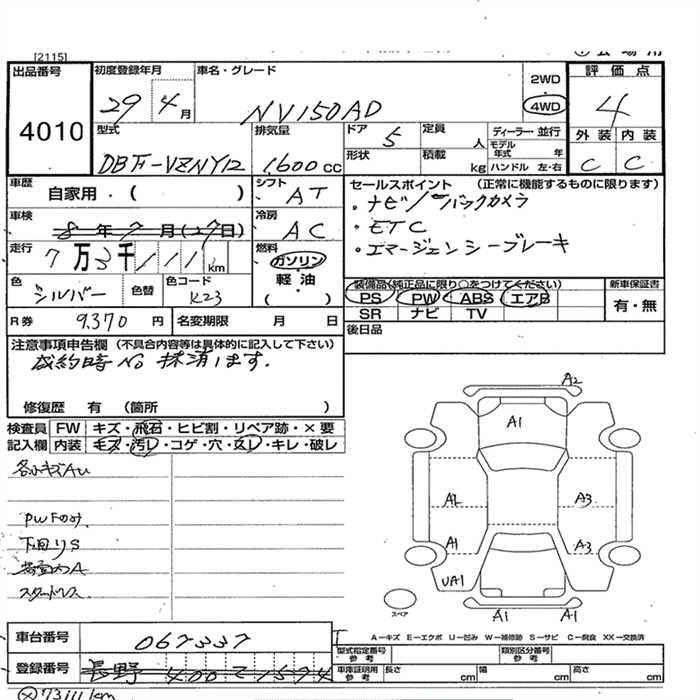 [2115]
出品番号 4010
初度登録年月 29 4月
車名・グレード NV150AD
2WD
4WD
評価点 4
外装 内装
C C
型式 DBF-VZNY12
排気量 1,600cc
ドア 5
定員 人
形状
積載 kg
ディーラー・並行
モデル年式 年
ハンドル 左・右
車歴 自家用・( )
シフト AT
車検 8年7月(27日)
冷房 AC
走行 7万3千111km
燃料 ガソリン・軽油・( )
色 シルバー
色替
色コード K23
R券 9,370円
名変期限 月 日
セールスポイント (正常に機能するものに限ります)
・ナビ/バックカメラ
・ETC
・エマージェンシーブレーキ
装備品(純正品に限り○をつけてください)
PS PW ABS エアB
SR ナビ TV
新車保証書
有・無
後日品
注意事項申告欄 (不具合内容等は具体的に記入して下さい)
成約時No抹消します.
修復歴 有 (箇所 )
検査員記入欄
FW キズ・飛石・ヒビ割・リペア跡・×要
内装 キズ・汚レ・コゲ・穴・スレ・キレ・破レ
各小キズAU
PWFのみ
下回りS
荷室内A
スタッドレス
A2
A1
A2
A3
A1
A3
UA1
A1
A1
スペア
A-キズ E-エクボ U-凹み W-補修跡 S-サビ C-腐食 XX-交換済
車台番号 067337
登録番号 長野 400 1594
型式指定番号 参考
類別区分番号 参考
車庫証明用 参考
長さ cm
幅 cm
高さ cm
73111km